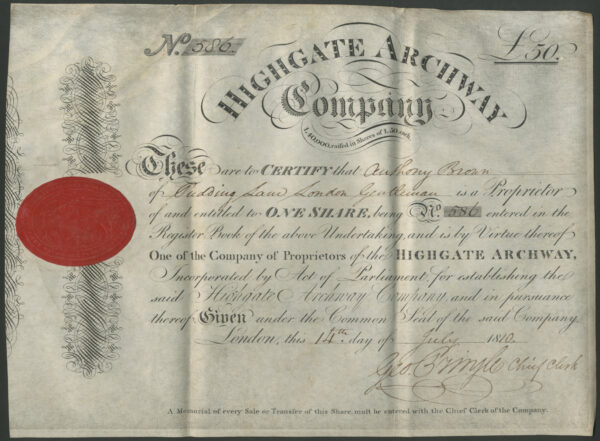 No. 586.
£50.
HIGHGATE ARCHWAY
Company
£40,000, raised in Shares of £50 each
These are to CERTIFY that Anthony Brown
of Pudding Lane London Gentleman is a Proprietor
of and entitled to ONE SHARE, being No. 586 entered in the
Register Book of the above Undertaking, and is by Virtue thereof
One of the Company of Proprietors of the HIGHGATE ARCHWAY,
Incorporated by Act of Parliament, for establishing the
said Highgate Archway Company, and in pursuance
thereof Given under the Common Seal of the said Company
London, this 14th day of July 1810.
Geo. Pringle Chief Clerk
A Memorial of every Sale or Transfer of this Share, must be entered with the Chief Clerk of the Company.